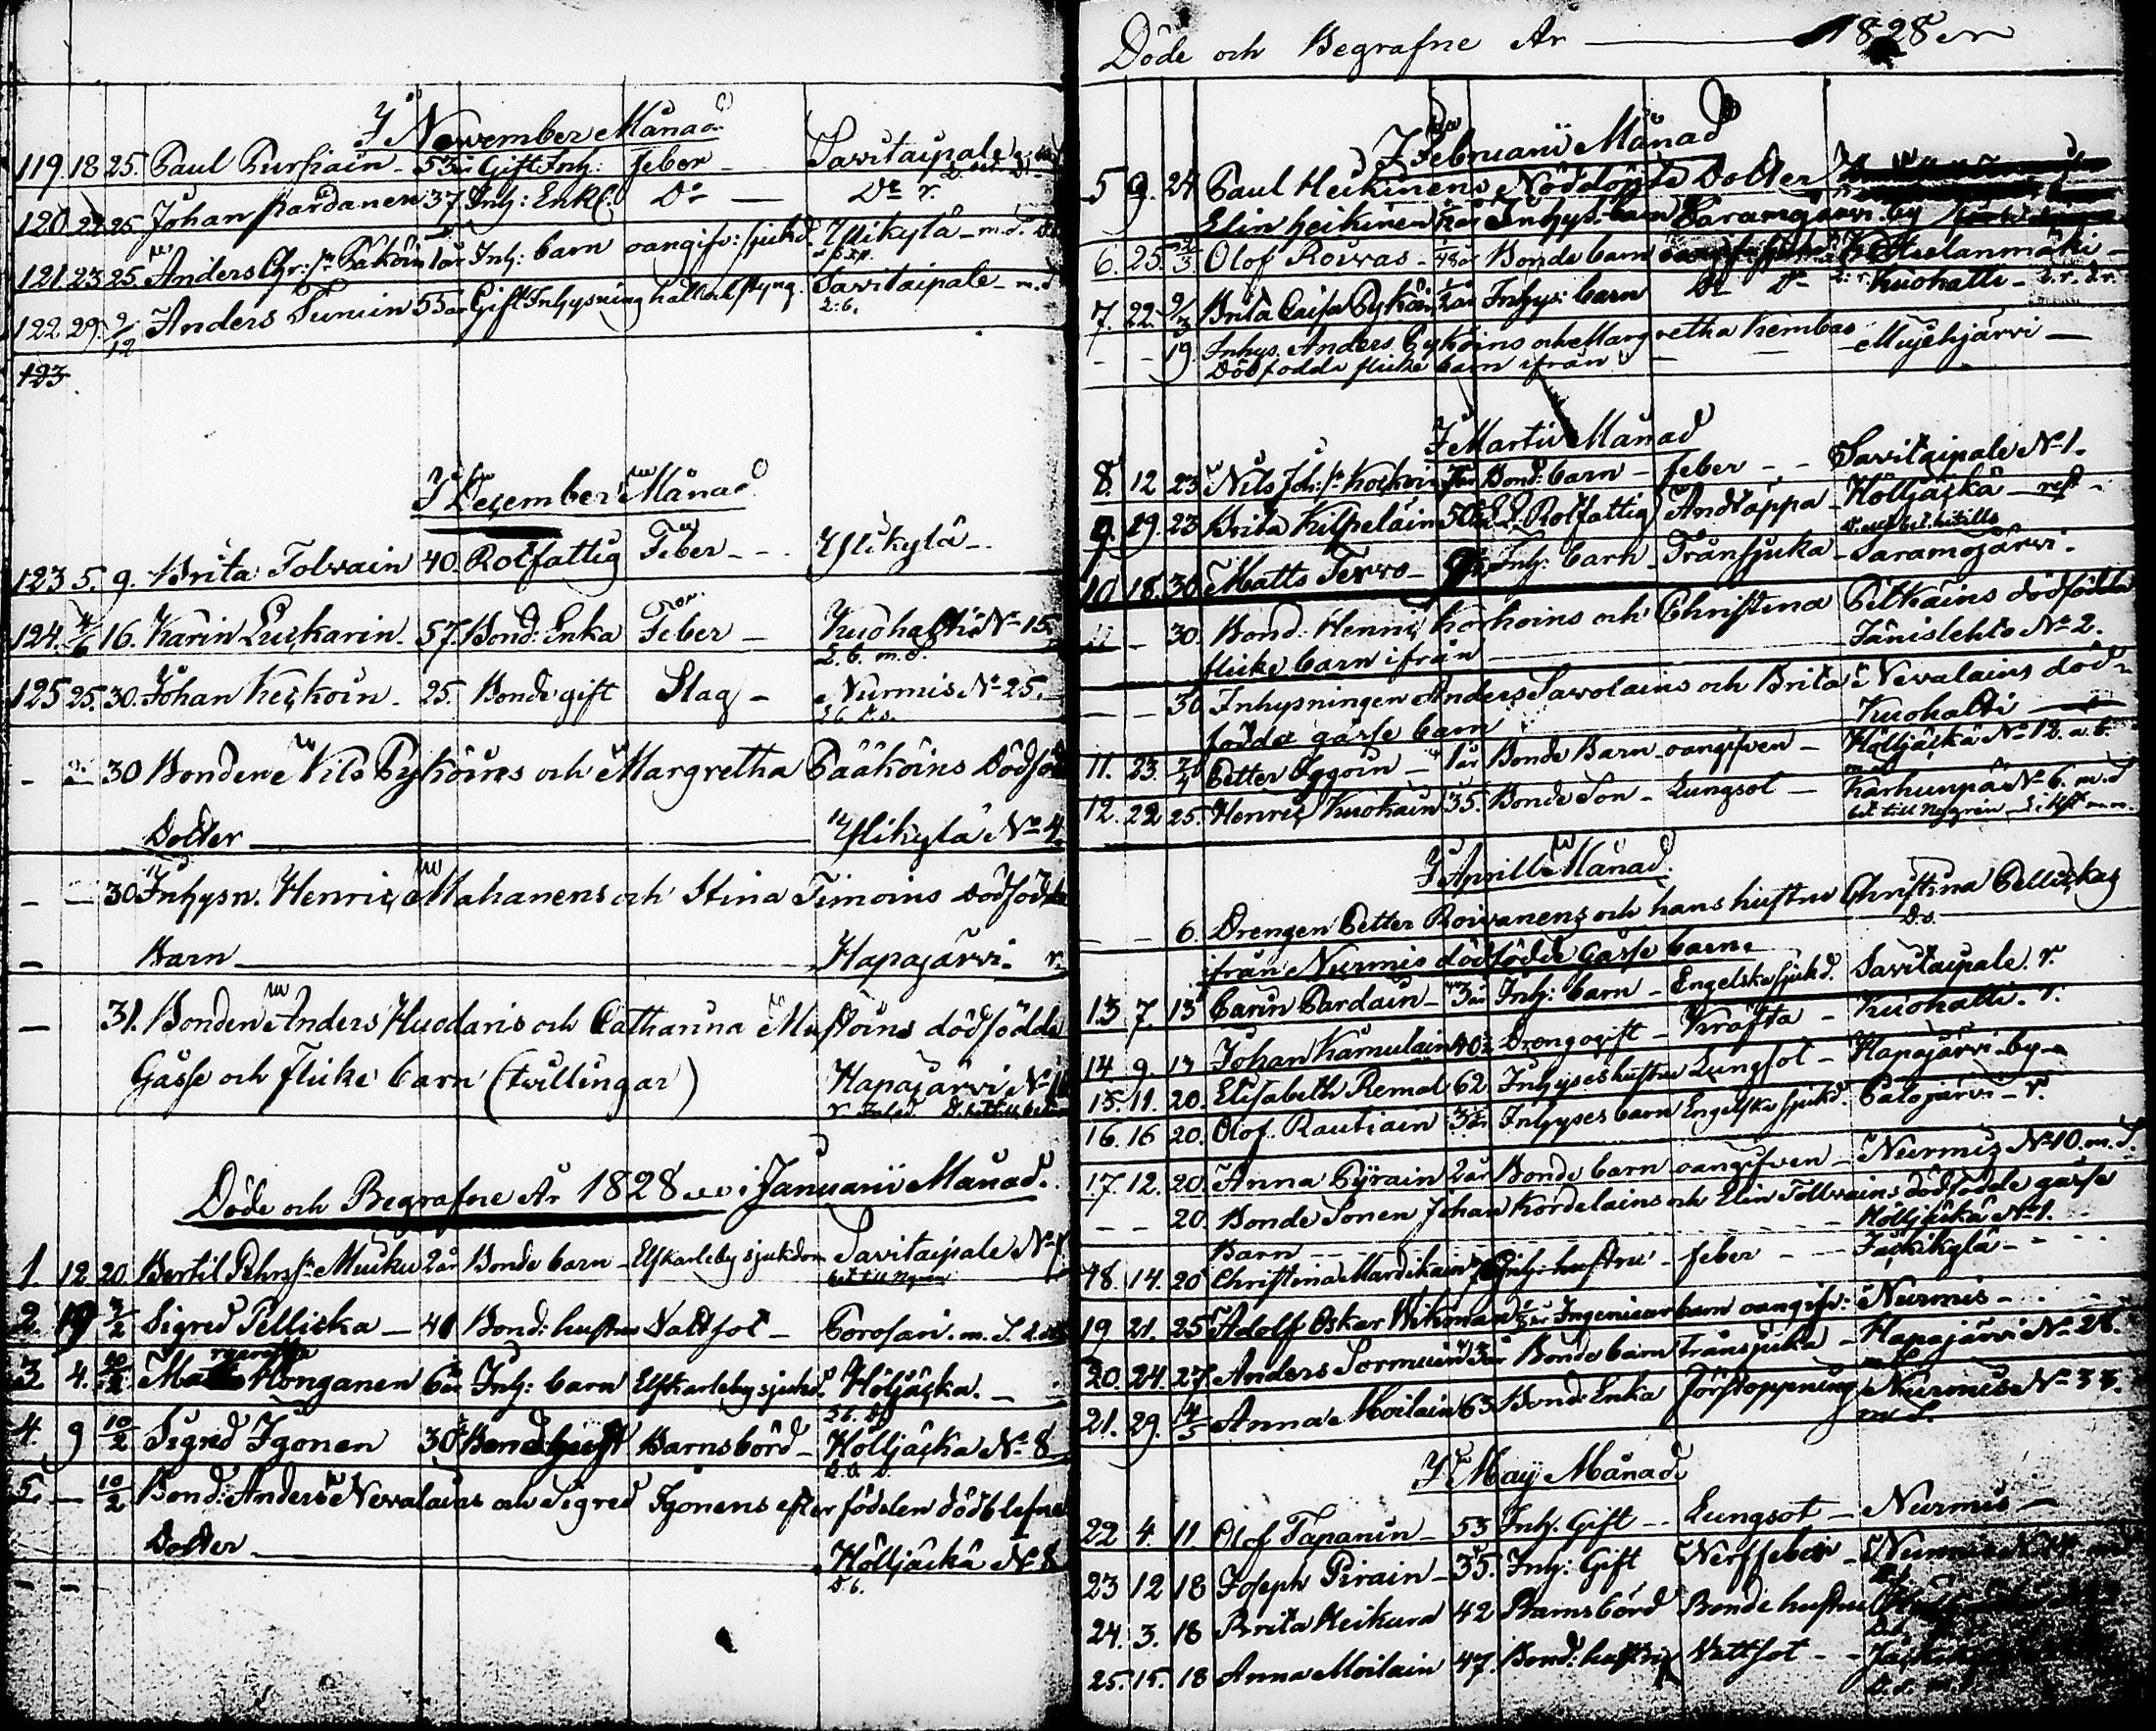 I November Månad
119. 18 25. Paul Pursiain - 53 år Gift Inh: feber - Savitaipale
120 22 25 Johan Kärdänen 37. Inh: Enkl. Do - Do r.
121. 23 25. Anders Chr: sn Päköin 1 år Inh: barn oangifv: sjukd. Ylikylä - m.S.
122. 29. 9/12 Anders Sunin 55 år Gift Inhysning håll och styng. Savitaipale - m.S
L: b.
123
I December Månad
123 5. 9. Brita Tolvain 40. Rotfattig Feber - - Ylikylä -
124. 4/6 16. Karin Luckarin. 57. Bond: Enka Feber - Kuohatti No 15.
L. b. m. S.
125 25. 30. Johan Keckoin - 25. Bonde gift Slag - Nurmis No 25.
- - 30 Bondene Nils Pyköines och Margretha Pääköins Dödföd
Dotter Ylikylä No 4.
- - 30. Inhysn. Henric Mahanens och Stina Timoins dödfödda
- Barn Hapajärvi. r.
- 31. Bonden Anders Huodaris och Catharina Mustoins dödfödde
Gåsse och flicke barn (tvillingar) Hapajärvi No
Döde och Begrafne År 1828 i Januarii Månad.
1. 12. 20. Bertil Pehrs sn Mucku 2 år Bonde barn - Elfkarleby sjukdom Savitaipale No
2. 19 3/2 Sigred Pellicka - 41 Bond: hustru Vattsot - Porosari. m. S.
3 4. 10/2 Honganen 6 år Inh: barn Elfkarleby sjukd. Höljäckä. -
4. 9 10/2 Sigred Igonen 30 Bond hust Barnsbörd - Hölljäckä No 8
5. - 10/2 Bond: Anders Nevalains och Sigred Igonens efter födelen dödblefne
Dotter Hölljäckä No 8
- - D b.
Döde och Begrafne År 1828
I Februarii Månad
5 9. 24 Paul Heikinens Nöddöpte Dotter
Elin Heikinen Inhys. barn Saramojärvi by
6. 25. 2/3 Olof Roivas - Bonde barn Haselanmäki -
7. 22. 9/3 Brita Caisa Pyköin 2 år Inhys: barn Do Do Kuohatti - L. r. d. r.
- - 19 Inhys. Anders Pyköins och Margretha Kembas Mujehjärvi -
Dödfödde flicke barn ifrån - - -
I Martii Månad
8. 12 23 Nils Joh: sn Kockoi Bond: barn - feber - - Savitaipale No 1.
9. 19. 23 Brita Kilpeläin 50 Rotfattig Andtäppa - Hölljäckä -
10 18. 30. Matts Tervo - Inh: barn - Trånsjuka - Saramojärvi.
- 30. Bond: Henric Korhoins och Christina Pitkäins dödfödda
flicke barn ifrån Jänislehto No 2.
- - 30 Inhysningen Anders Savolains och Brita Nevalains död-
födda gåsse barn Kuohatti
11. 23. 7/4 Petter Iggoin - 1 år Bonde Barn - oangifven - Hölljäckä No 12. a. b.
12. 22 25. Henric Kuohain 35. Bonde Son - Lungsot - Karhunpä No 6. m. S
I Aprill Månad.
- - 6. Drengen Petter Roivanens och hans hustru Christina Pellickas
ifrån Nurmis dödfödde Gåsse barn. D.o.
13 7. 13 Carin Pardain - 3 år Inh: barn - Engelska sjukd. Savitaipale. r.
14 9. 13 Johan Kämulain 40 Dreng gift - Kräfta - Kuohatti. r.
15. 11. 20. Elisabeth Remal 62 Inhyses hustru Lungsot - Hapajärvi by -
16. 16 20. Olof Rautiain 3 år Inhyses barn Engelska sjukd. Palojärvi - r.
17. 12. 20. Anna Pyrain 2 år Bonde barn oangifven - Nurmis No 10. m. S.
- - 20. Bonde Sonen Johan Kordelains och Elin Tollvains dödfödde gåsse
Barn - - - Hölljäckä No 1.
18. 14. 20 Christina Mardikain Inh: hustru - feber - - Jäckikylä - -
19 21. 25 Adolf Oskar Wikman Ingenieur barn oangifv: Nurmis - -
20. 24. 27 Anders Sormuin 3 år Bonde barn Trånsjuka - Hapajärvi No 28.
21. 29. 14/5 Anna Moilain 63 Bond: Enka förstoppning Nurmis No 33.
m S.
I Maij Månad
22 4. 11. Olof Tapanin - 53 Inh. Gift - Lungsot - Nurmis -
23 12 18 Joseph Pirain - 35. Inh: Gift Nerffeber - Nurmis
24. 3. 18 Brita Heikura 42 Barnsbörd Bonde hustru
25. 15. 18 Anna Moilain 47. Bond: hustru Vattsot - -